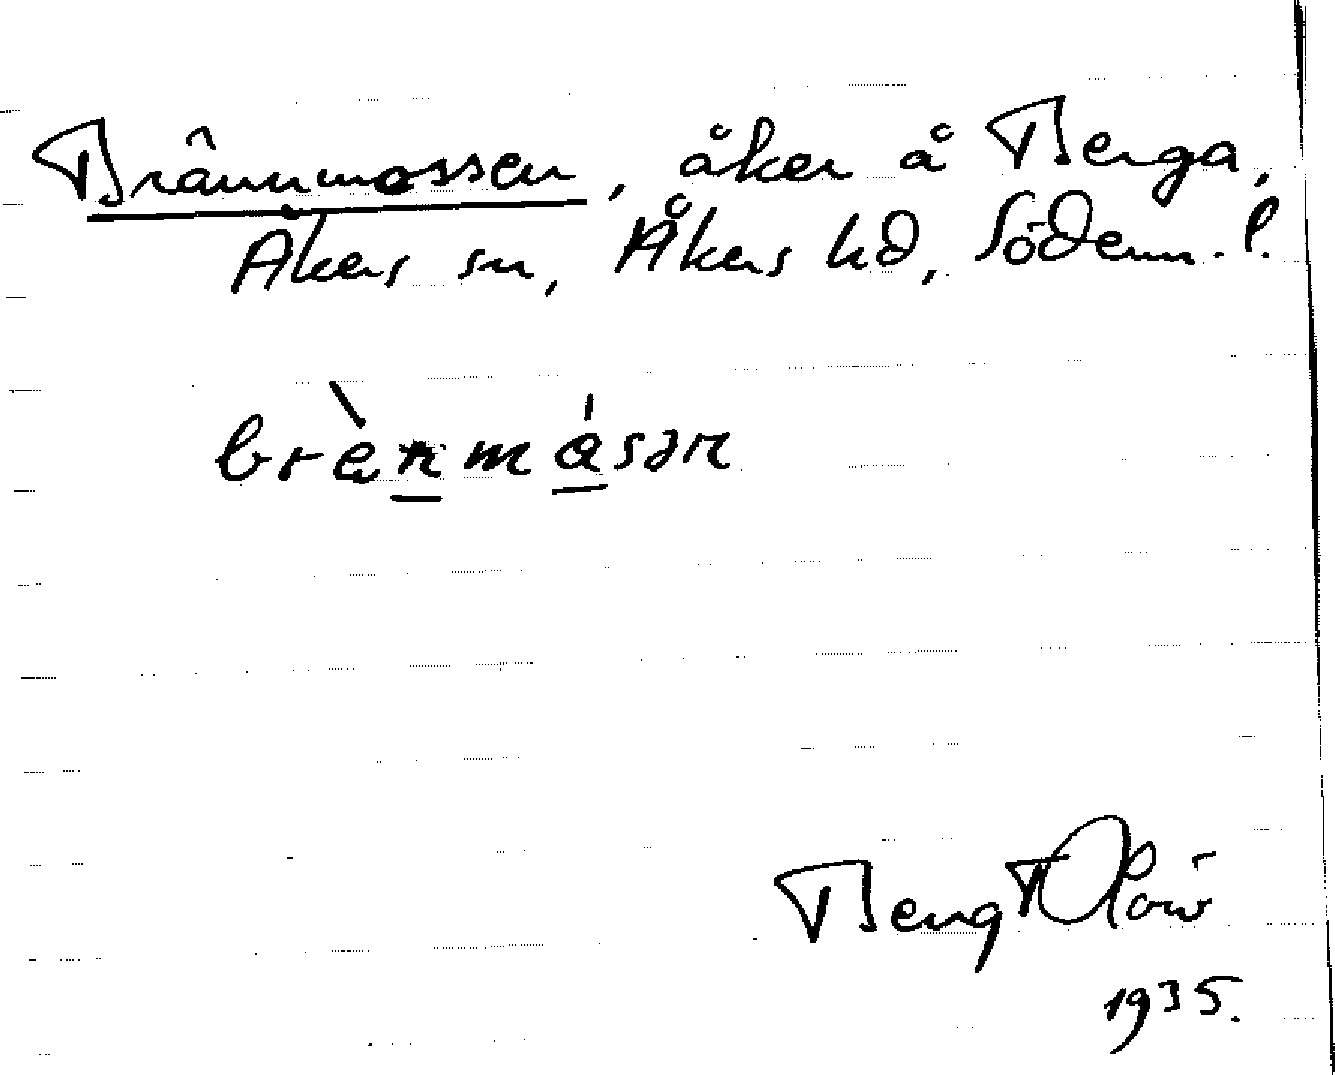 Brännmossen, åker å Berga,
Åkers sn, Åkers hd, Söderm. l.
brὲnmósən
Bengt Olow
1935.